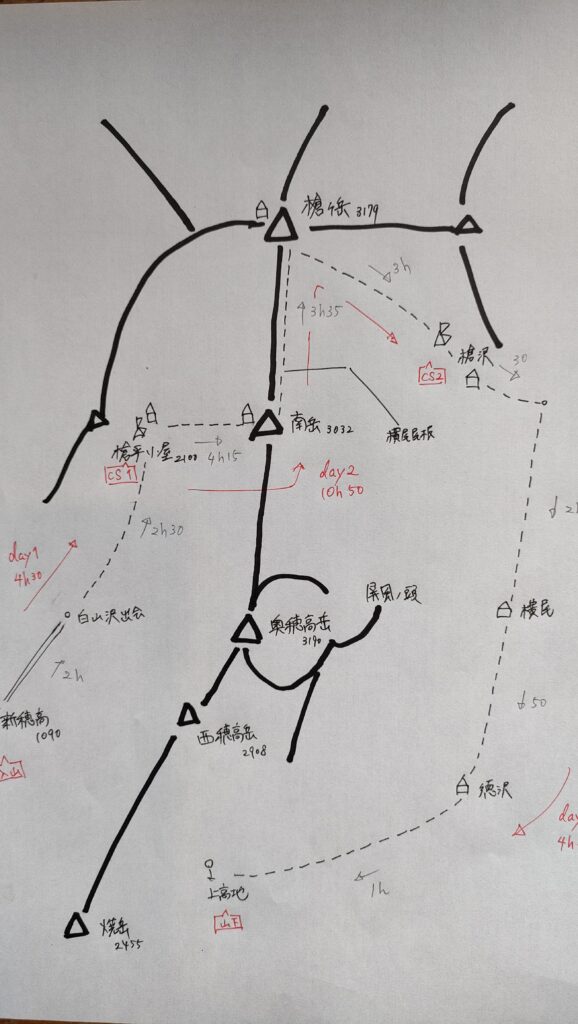 槍ヶ岳 3179
3h
3h35
CS2
槍沢
30
南岳 3032
槍平小屋 2100
CS1
4h15
day2
10h 50
2h30
day1
4h30
白山沢出合
2h
新穂高
1090
入山
奥穂高岳
3190
屏風ノ頭
横尾
50
西穂高岳
2908
徳沢
1h
上高地
山下
焼岳
2455